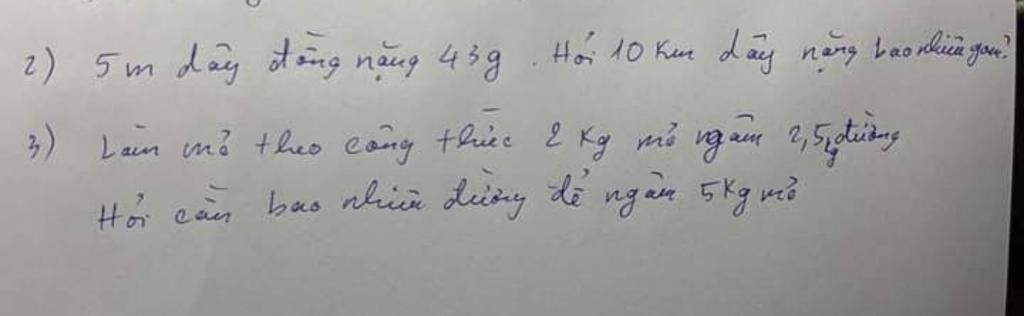 2) 5m dây đồng nặng 43g. Hỏi 10 Km dây nặng bao nhiêu gam?
3) Làm mơ theo công thức 2 Kg mơ ngâm 2,5kg đường
Hỏi cần bao nhiêu đường để ngâm 5Kg mơ